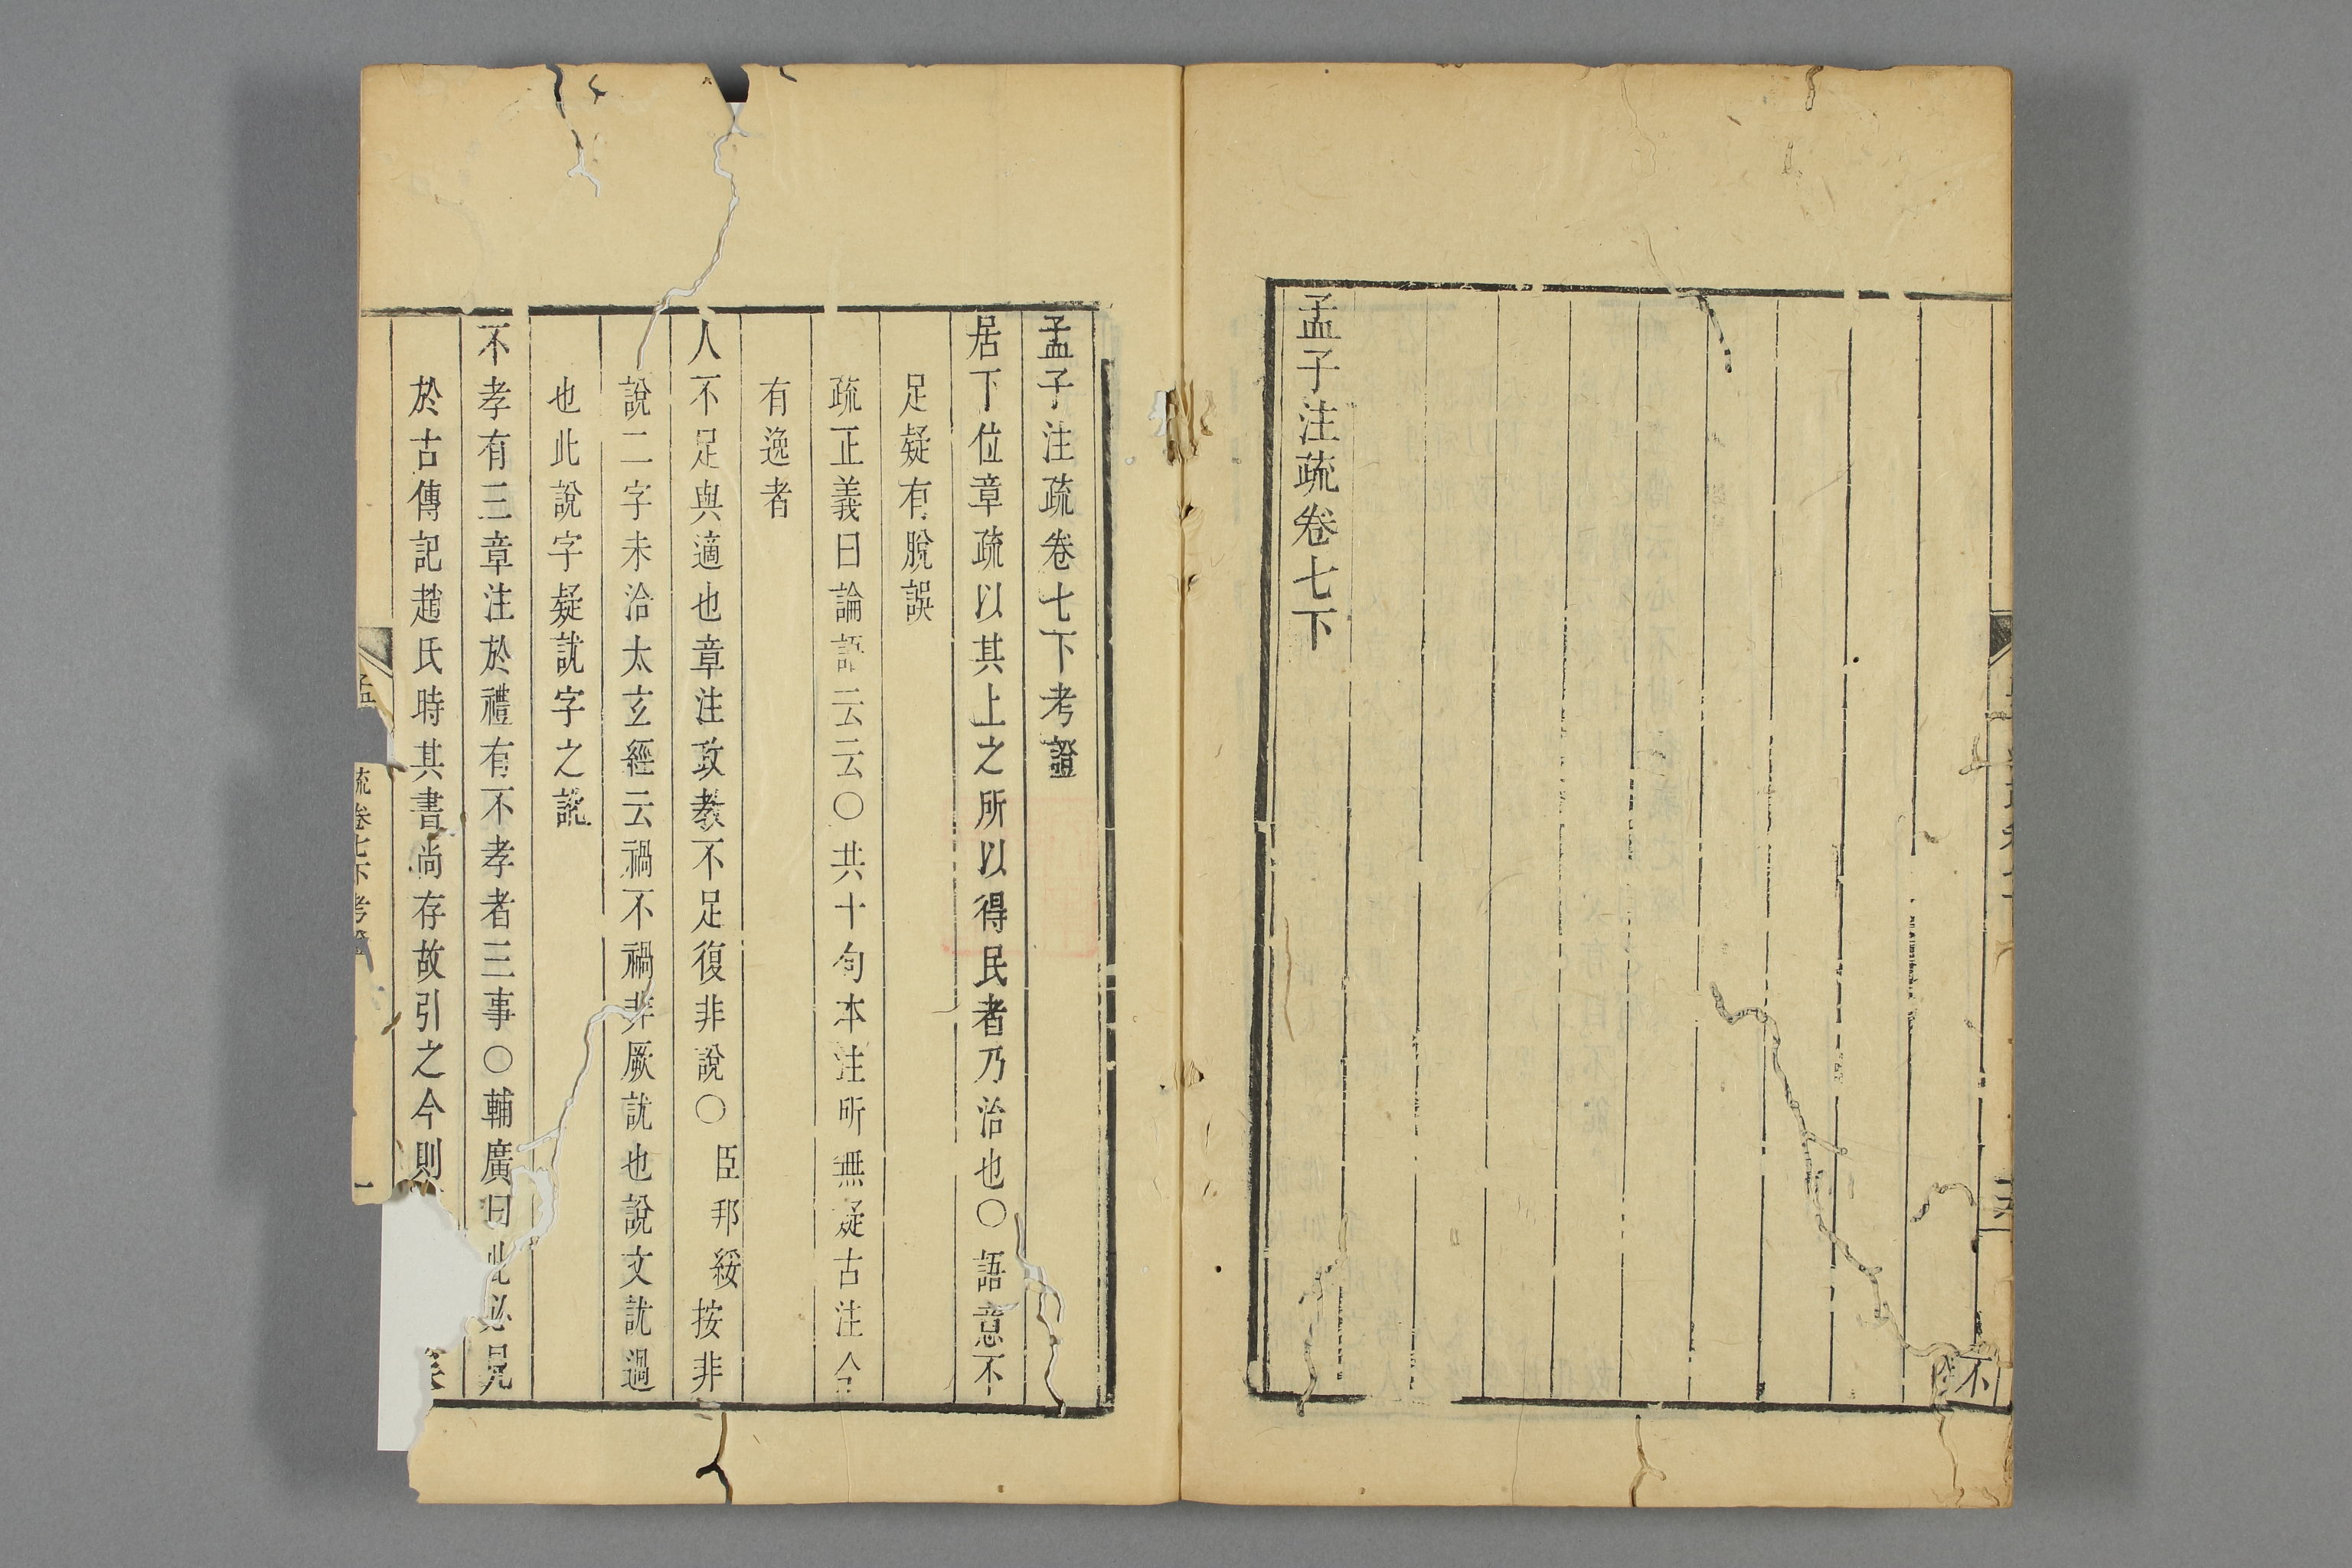 孟子注疏卷七下
孟子注疏卷七下考證
居下位章疏以其上之所以得民者乃治也○語意不
足疑有脫誤
疏正義曰論語云云○共十句本注所無疑古注今
有逸者
人不足與適也章注政教不足復非說○臣邦綏按非
說二字未洽太玄經云禍不禍非厥訧也說文訧過
也此說字疑訧字之說
不孝有三章注於禮有不孝者三事○輔廣曰此必見
於古傳記趙氏時其書尚存故引之今則
疏卷七下考證